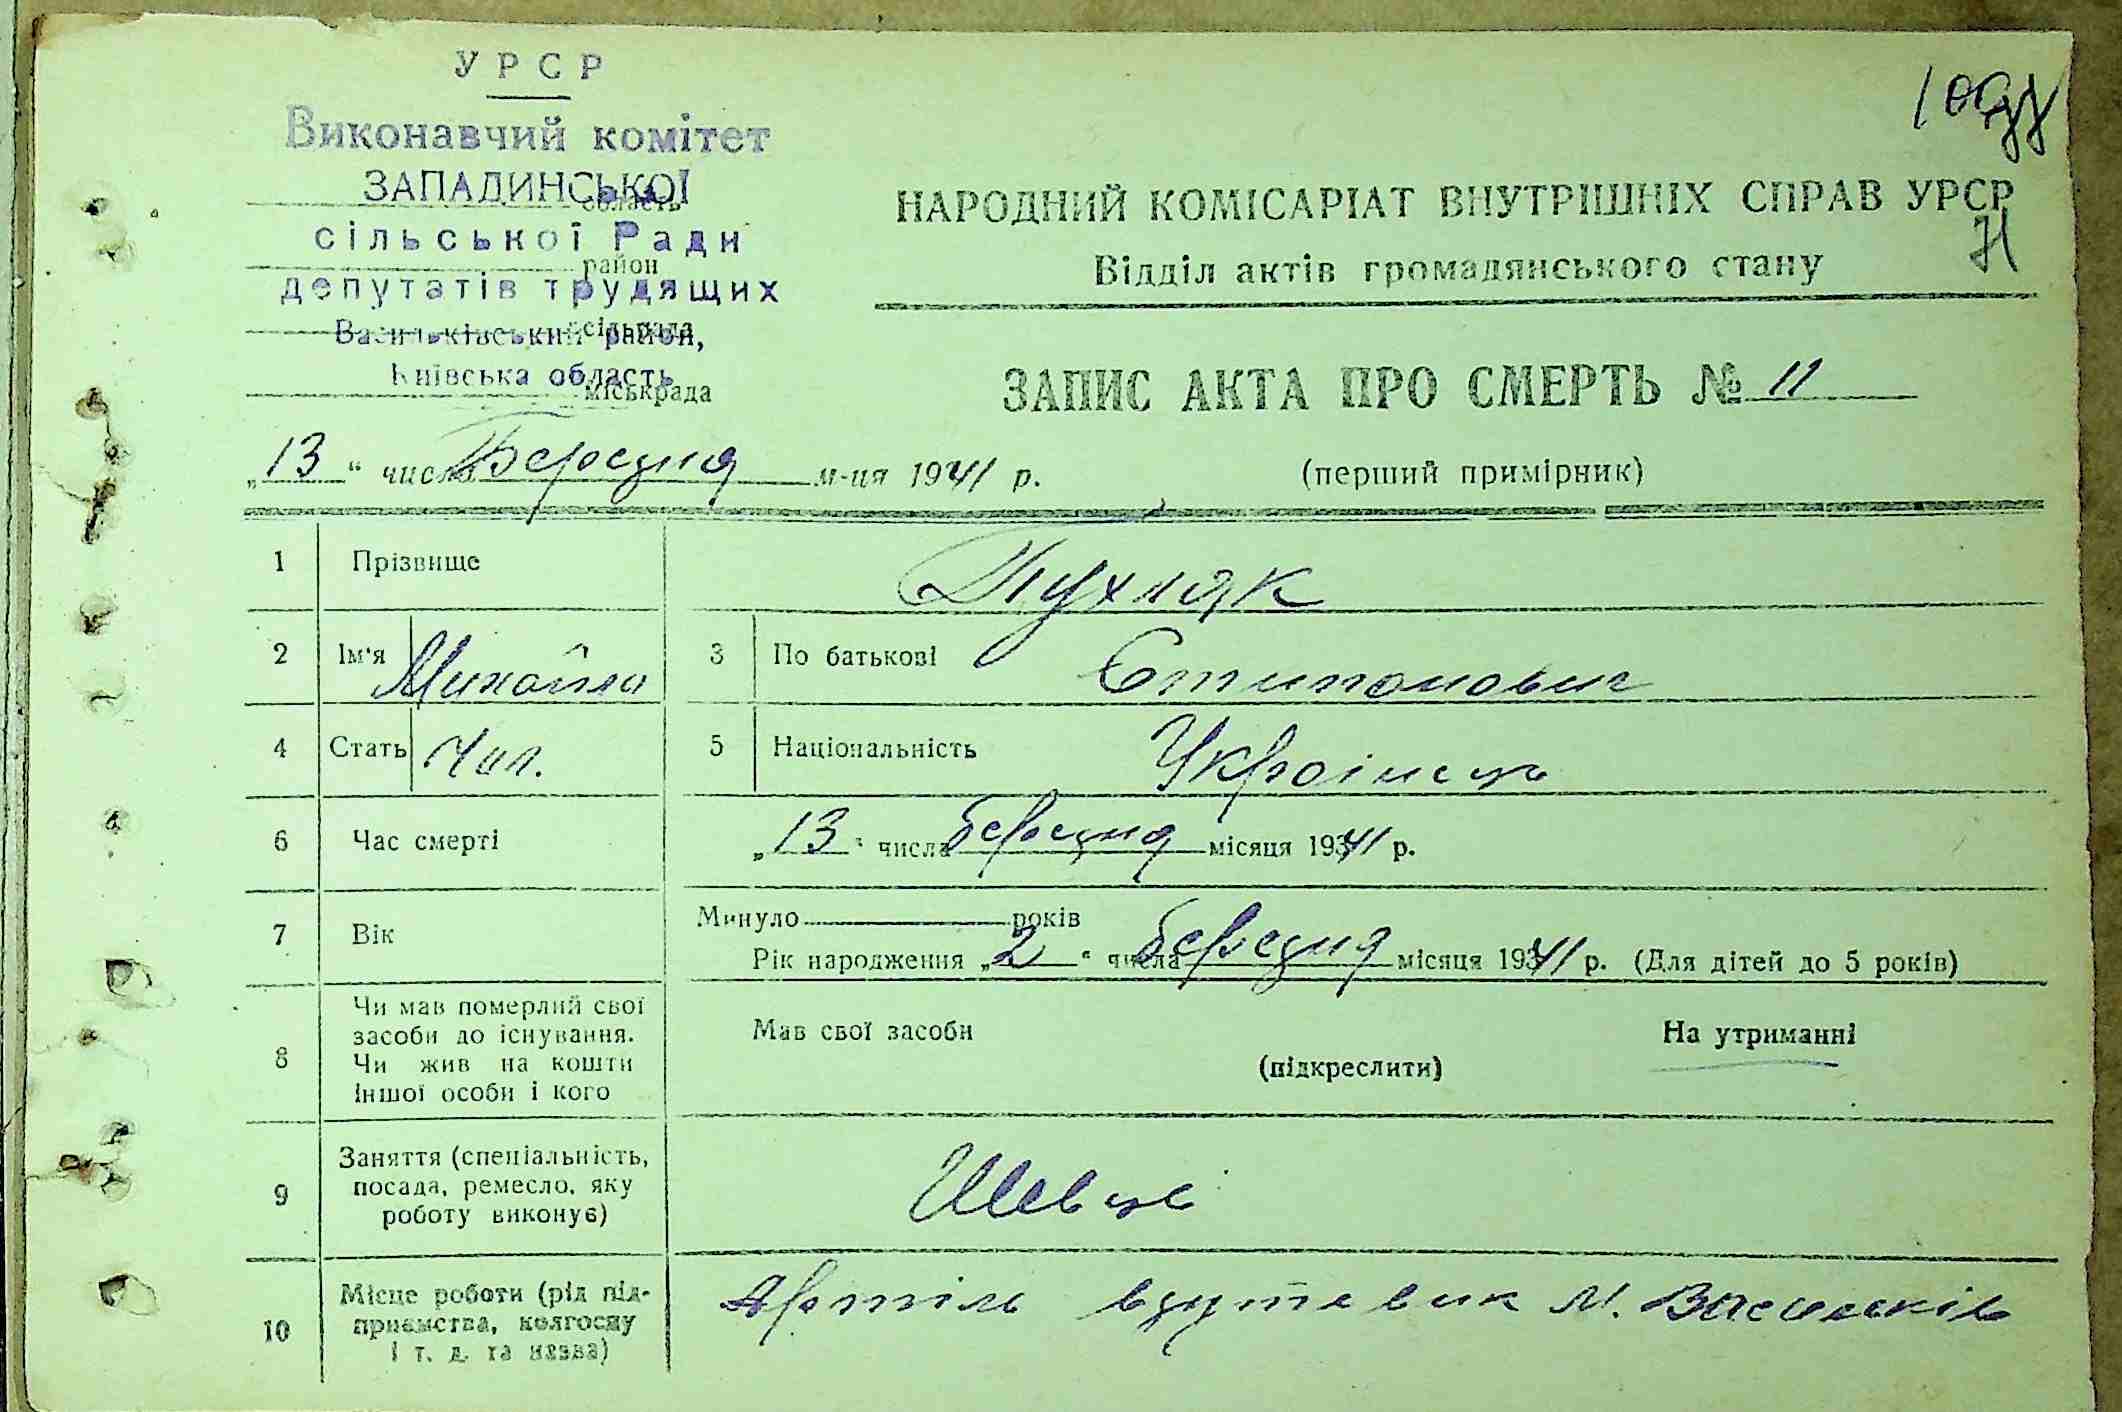 УРСР
Виконавчий комітет
ЗАПАДИНСЬКОЇ
область
сільської Ради
район
депутатів трудящих
сільрада
Васильківський район,
Київська область
міськрада
НАРОДНИЙ КОМІСАРІАТ ВНУТРІШНІХ СПРАВ УРСР
Н
Відділ актів громадянського стану
ЗАПИС АКТА ПРО СМЕРТЬ № 11
„13“ числа Березня м-ця 1941 р.
(перший примірник)
1 Прізвище Пухляк
2 Ім'я Михайло 3 По батькові Стипонович
4 Стать Чол. 5 Національність Украінець
6 Час смерті „13“ числа березня місяця 1941 р.
7 Вік Минуло років
Рік народження „2“ числа березня місяця 1941 р. (Для дітей до 5 років)
8 Чи мав померлий свої засоби до існування. Чи жив на кошти іншої особи і кого
Мав свої засоби На утриманні
(підкреслити)
9 Заняття (спеціальність, посада, ремесло, яку роботу виконує) Шевць
10 Місце роботи (рід підприємства, колгоспу і т. д. та назва) Артіль взутевик М. Васильків